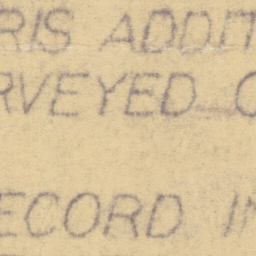 RIS ADDIT
RVEYED
ECORD IN